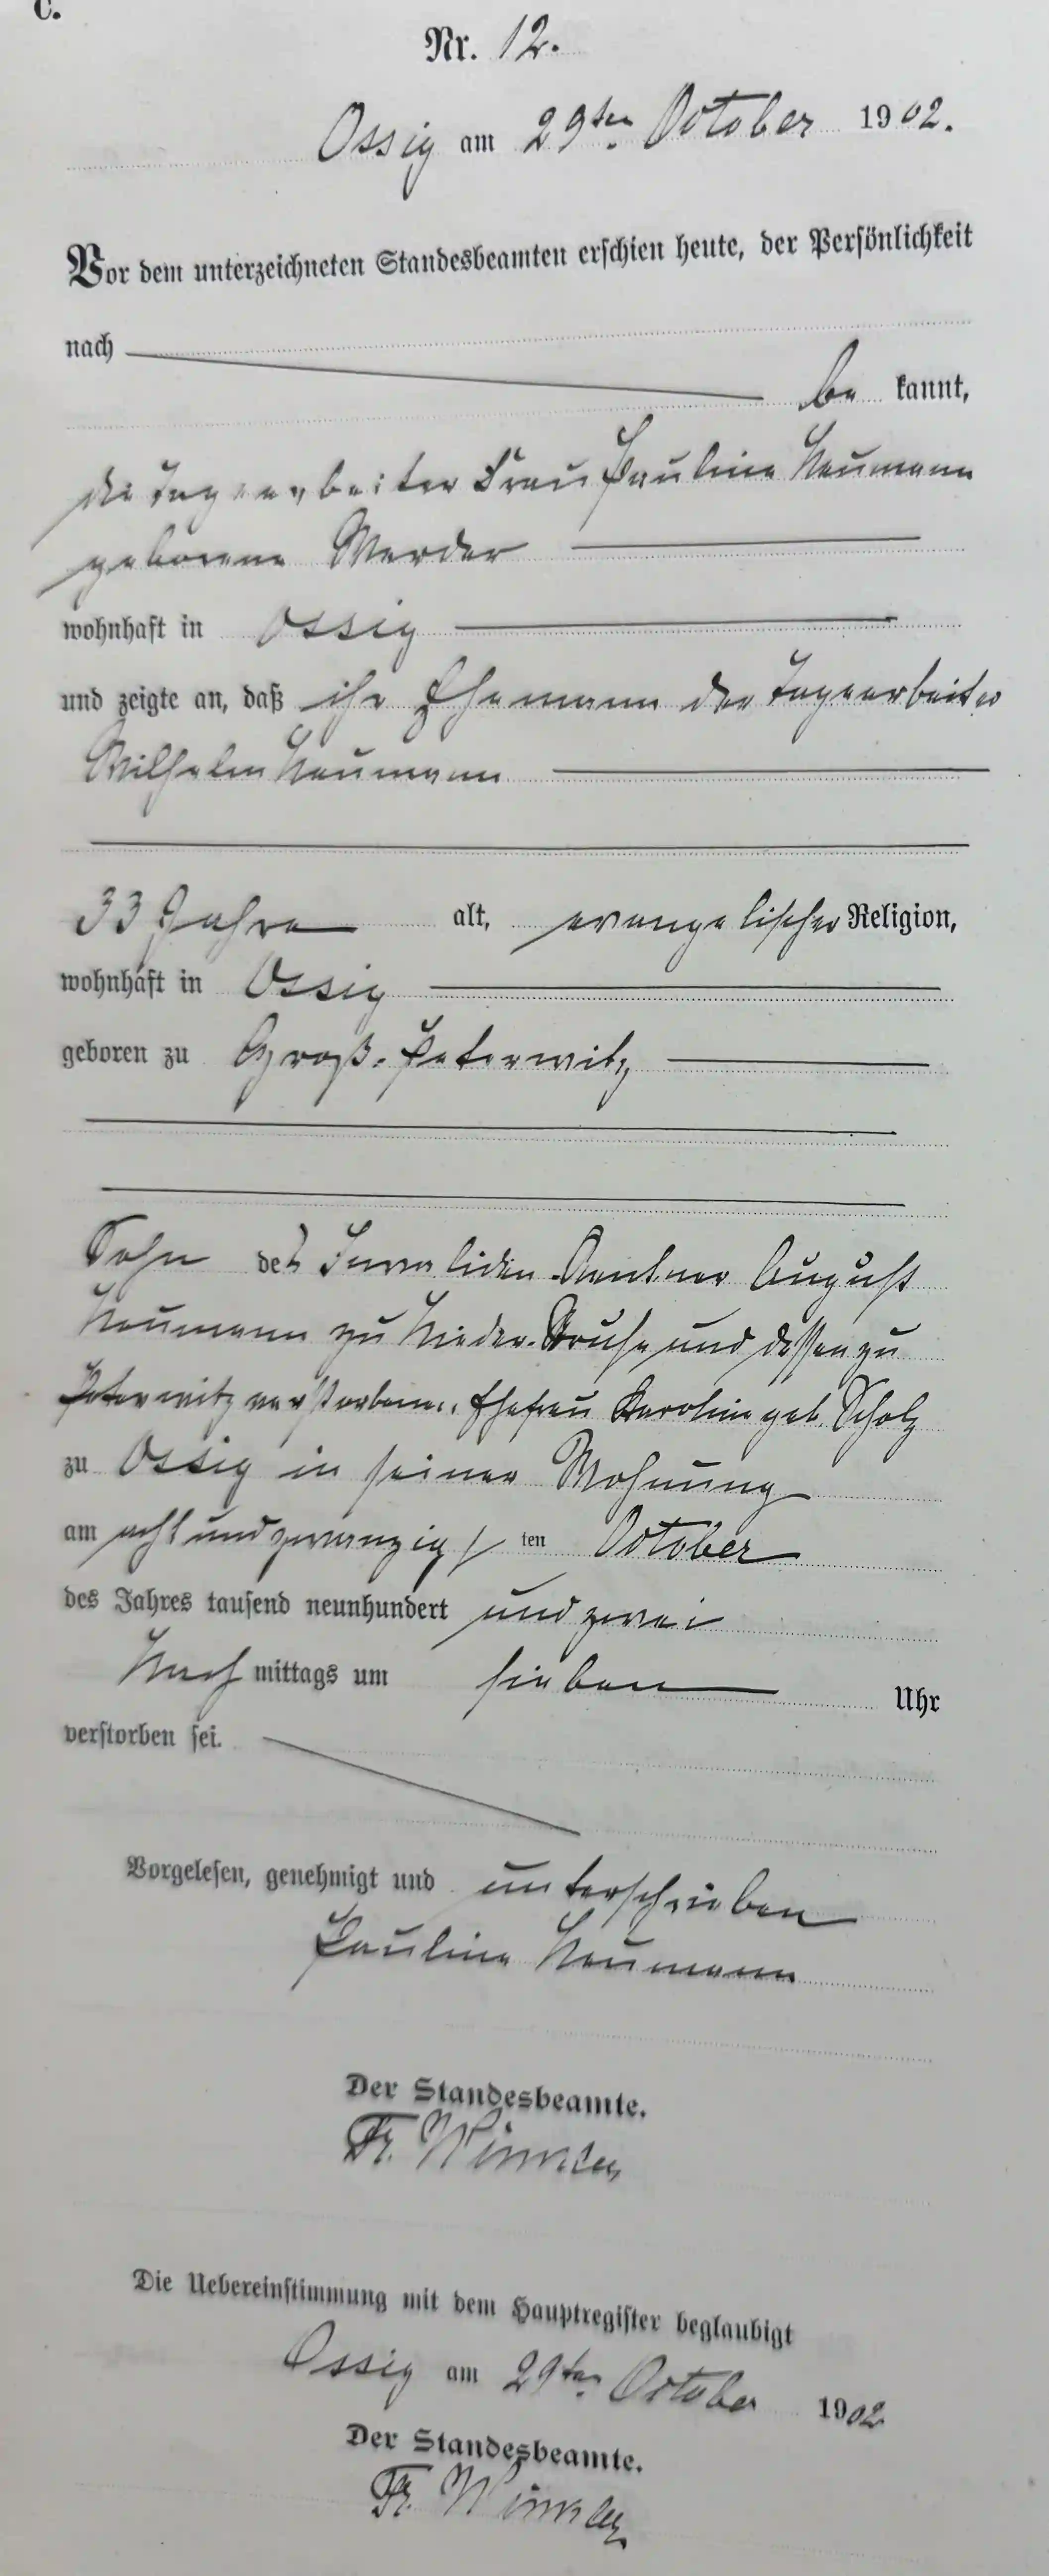 C.
Nr. 12.
Ossig am 29ten October 1902.
Vor dem unterzeichneten Standesbeamten erschien heute, der Persönlichkeit
nach
be kannt,
die Tagearbeiter Frau Pauline Neumann
geborene Werder
wohnhaft in Ossig
und zeigte an, daß ihr Ehemann der Tagearbeiter
Wilhelm Neumann
33 Jahre alt, evangelischer Religion,
wohnhaft in Ossig
geboren zu Groß-Peterwitz
Sohn des Invaliden-Rentner August
Neumann zu Nieder- und dessen zu
Peterwitz verstorbenen Ehefrau Karoline geb. Scholz
zu Ossig in seiner Wohnung
am acht und zwanzigsten October
des Jahres tausend neunhundert und zwei
Nach mittags um sieben Uhr
verstorben sei.
Vorgelesen, genehmigt und unterschrieben
Pauline Neumann
Der Standesbeamte.
Fr.
Die Uebereinstimmung mit dem Hauptregister beglaubigt
Ossig am 29ten October 1902
Der Standesbeamte.
Fr.